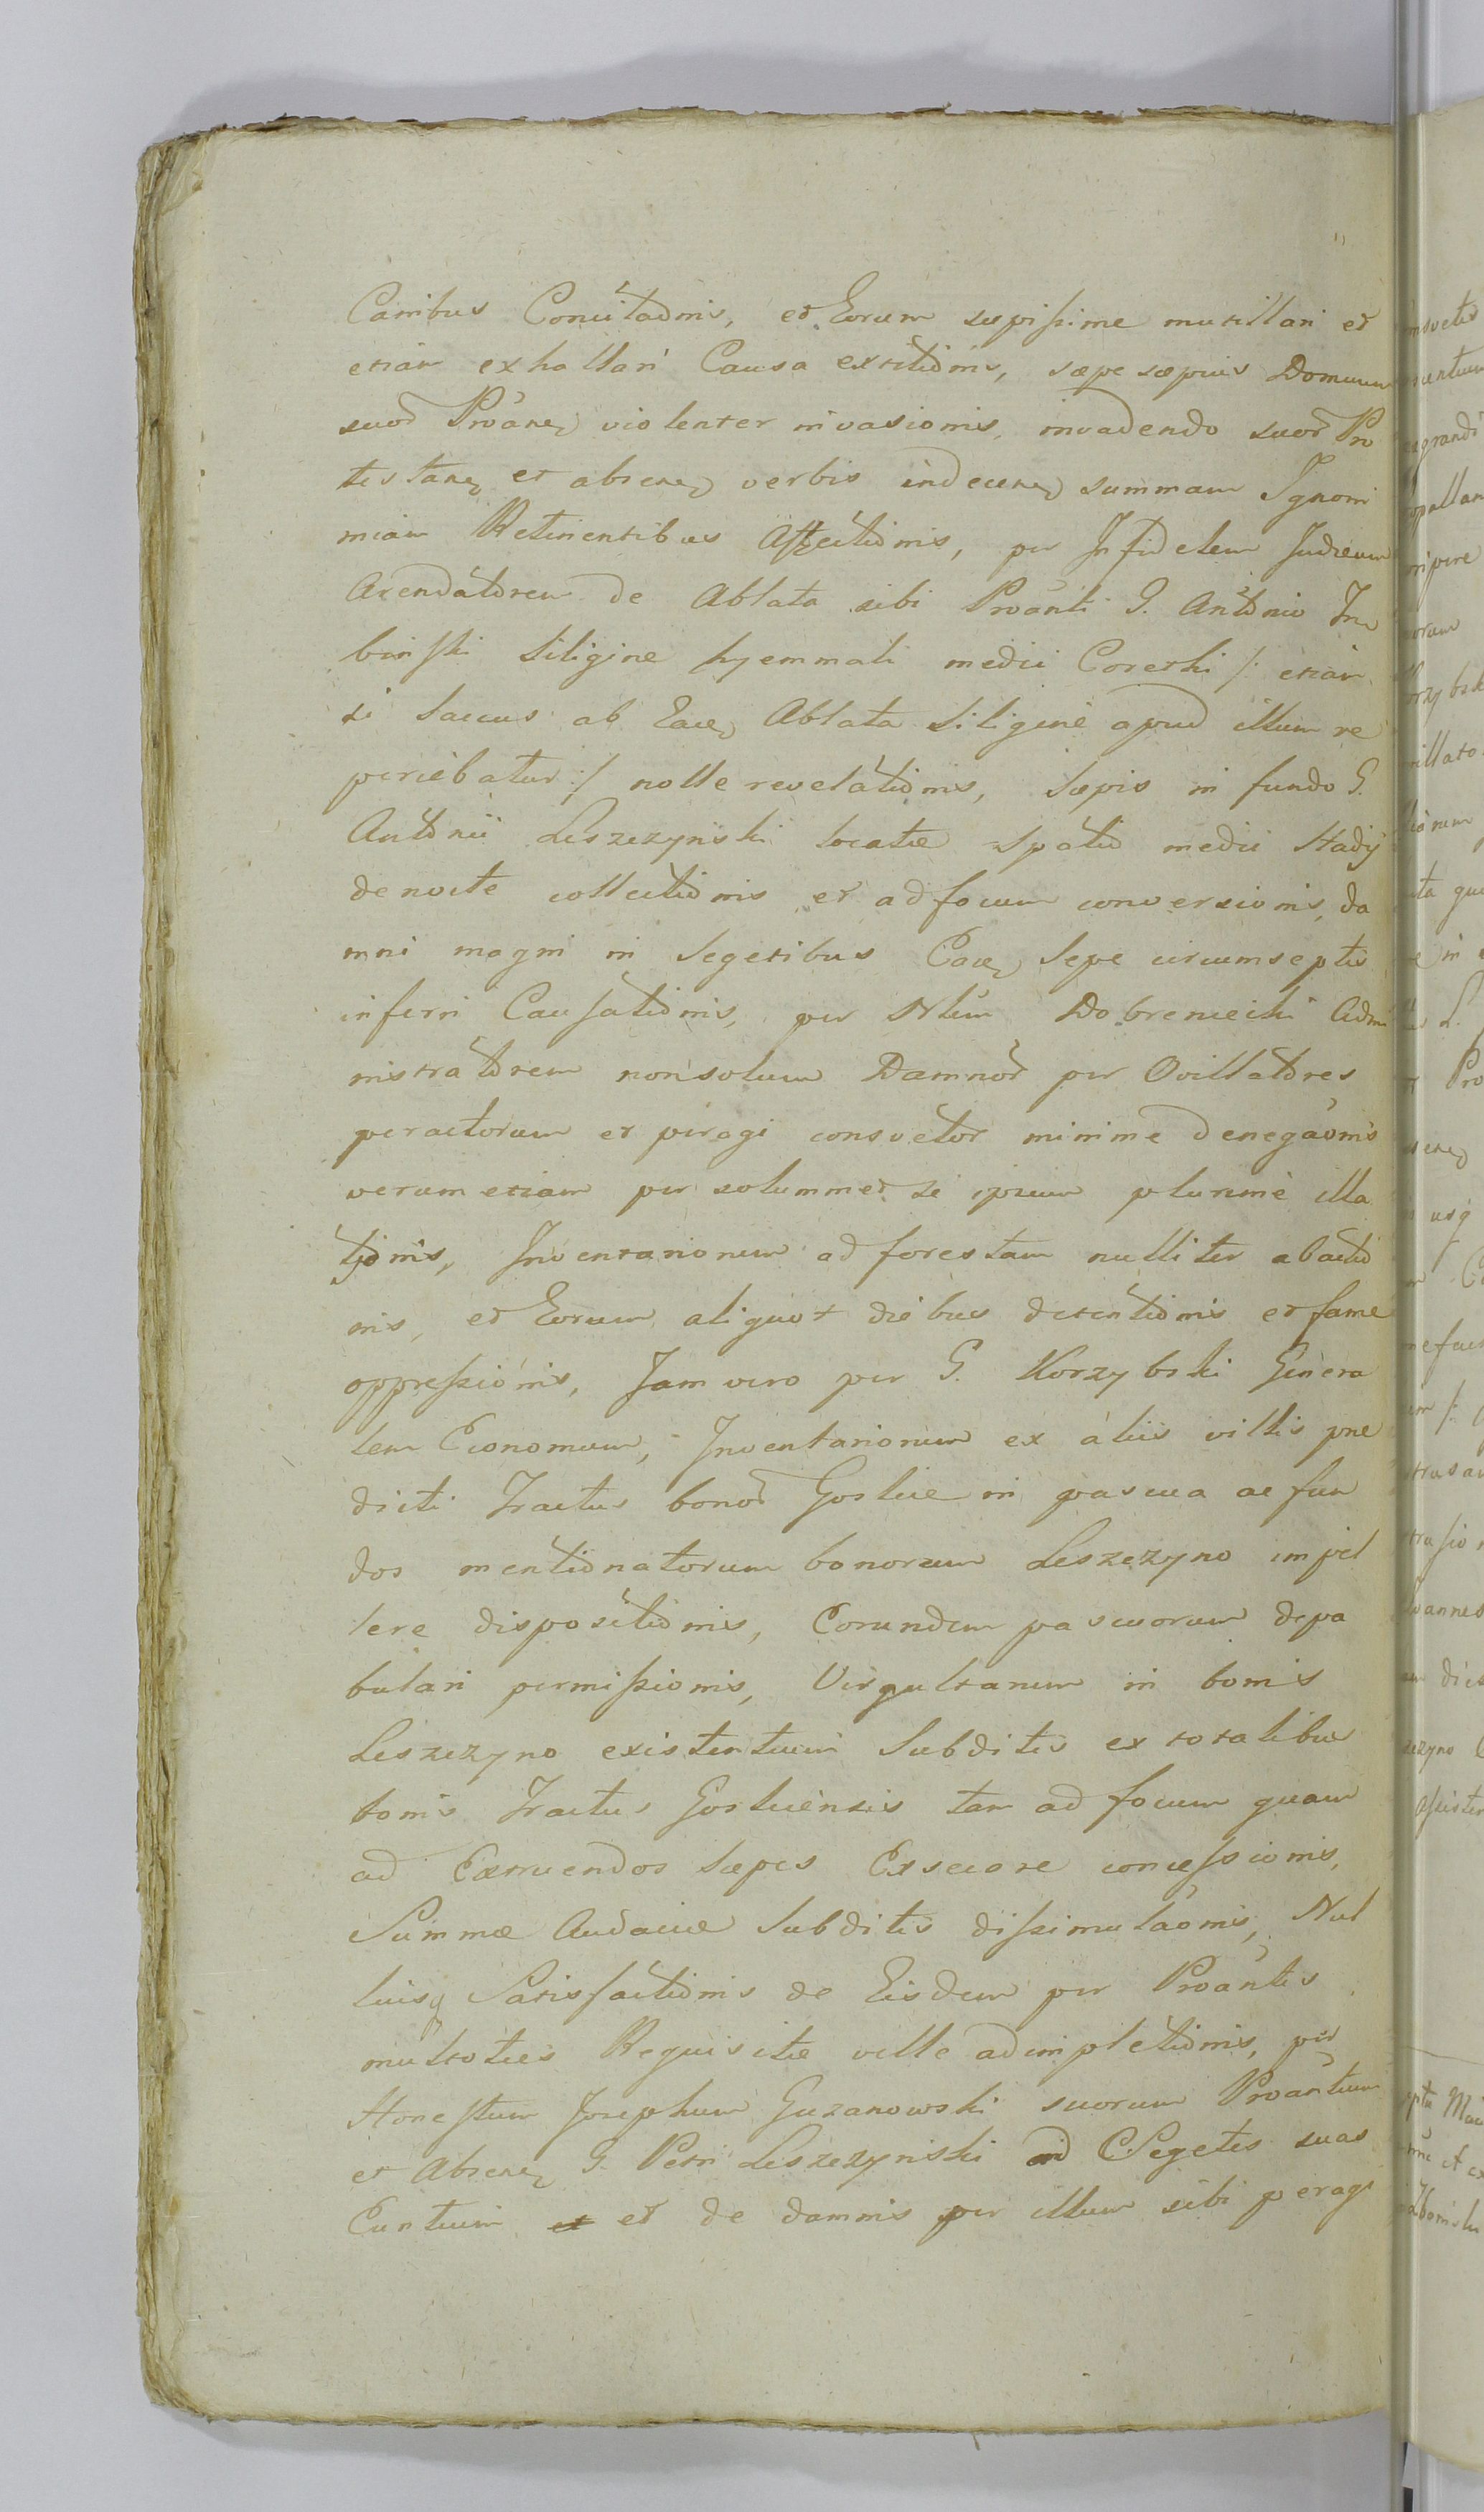 Canibus Concitaonis, et Eorum sæpissime mutillari et
etiam exhallari Causa extitionis, sæpe sæpius Domum
suor Proane violenter invasionis, invadendo suor Pro
testane et absene verbis indecene summam Ignomi
niam Retinentibus Affectionis, per Infidelem Judæum
Arendatorem de Ablata sibi Proanti G. Antonio Tru
binski Siligine hyemmali medii Coretki /: etiam
si Saccus ab Eade Ablata Siligine apud illum re
periebatur :/ nolle revelationis, Sæpis in fundo G.
Antonii Leszczynski locatæ spatio medii Stadij
de nocte collectionis et ad focum conversionis, da
mni magni in Segetibus Eade Sepe circumseptis
inferri Causationis, per Nlem Dobreniecki Admi
nistratorem non solum Damnor per Ovillatores
peractorum et peragi consvetor minime denegaonis
verum etiam per solummet se ipsum plurime illa
tionis, Inventariorum ad forestam nulliter abactio
nis, et Eorum aliquot diebus detentionis et fame
oppressionis, Jam vero per G. Korzybski Genera
lem Economum, Inventariorum ex aliis villis præ
dicti Tractus bonor Goslice in pascua ac fun
dos mentionatorum bonorum Leszczyno impel
lere dispositionis, Eorundem pascuorum depa
bulari permissionis, Virgultarum in bonis
Leszczyno existentium Subditis ex totalibus
bonis Tractus Goslicensis tam ad focum quam
ad Exstruendos Sæpes Exsecare concessionis,
Summæ Audaciæ Subditis dissimulaonis, Nul
liusq Satisfactionis de Eisdem per Proantes
multoties Requisitæ velle adimpletionis, per
Honestum Josephum Guzanowski suorum Proantium
et Absene G. Petri Leszczynski ad Segetes suas
Euntium et de damnis per illum sibi peragi